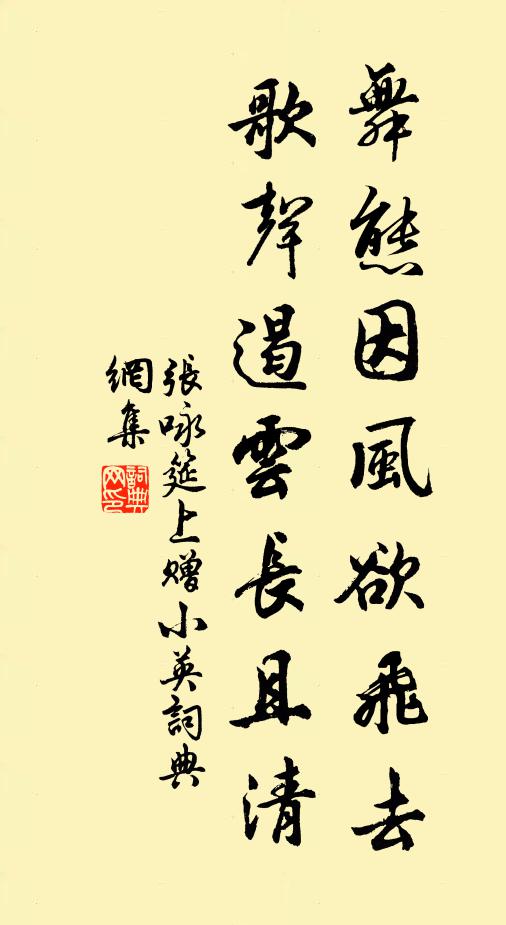 舞態因風欲飛去
歌聲遏雲長且清
張咏筵上贈小英詞典
網集
詞典網印